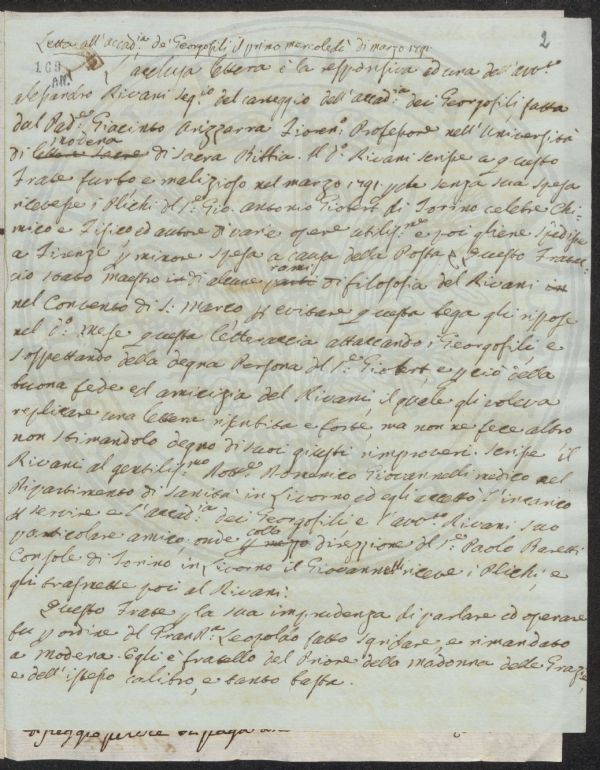 Letta all'accad.ia de' Georgofili il primo mercoledì di marzo 1791.
2
169
AN.
L'acclusa lettera è la responsiva ad una dell'avv.to
Alessandro Rivani Seg.rio del carteggio dell'accad.ia dei Georgofili, fatta
dal Pad.e Giacinto Fioren.o Professore nell'Università
modena
di di Sacra Bibbia. Il d.o Rivani scrisse a questo
Frate furbo e malizioso nel marzo 1791 senza sua spesa
ricevesse i Plichi del S.r Gio. Antonio Giobert di Torino celebre Chi-
mico e Fisico ed autore di varie opere utiliss.me e poi gliene spedisse
a Firenze p minore spesa a causa della Posta. Questo Fratac-
rami
cio stato maestro in di alcune parti di filosofia del Rivani in
nel Convento di S. Marco p evitare questa bega gli rispose
nel d.o mese questa letteraccia attaccando i Georgofili e
sospettando della degna Persona del S.r Giobert, e p ciò della
buona fede ed amicizia del Rivani, il quale gli voleva
replicare una lettera risentita e forte, ma non ne fece altro
non stimandolo degno di suoi giusti rimproveri. Scrisse il
Rivani al gentiliss.mo Dott.e Domenico Giovannelli medico nel
Dipartimento di Sanità in Livorno ed egli accettò l'incarico
p servire e l'accad.ia dei Georgofili e l'avv.to Rivani suo
colla
particolare amico, onde p mezzo direzione del S.r Paolo Baretti
Console di Torino in Livorno il Giovannelli riceve i Plichi, e
gli trasmette poi al Rivani.
Questo Frate p la sua imprudenza di parlare ed operare
fu p ordine del Leopoldo fatto sgridare, e rimandato
a Modena. Egli è fratello del Priore della Madonna delle Grazie,
e dell'istesso calibro, e tanto basta.